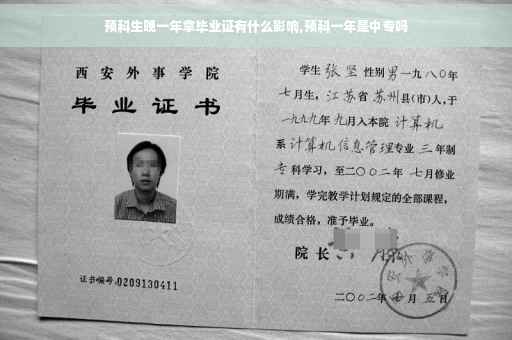 预科生晚一年拿毕业证有什么影响,预科一年是中专吗
西安外事学院
毕业证书
证书编号:0209130411
学生 张坚 性别 男 一九八〇年
七月生，江苏省苏州县(市)人，于
一九九九年九月入本院 计算机
系 计算机信息管理 专业 三 年制
专科学习，至二〇〇二年 七月修业
期满，学完教学计划规定的全部课程，
成绩合格，准予毕业。
院长
二〇〇二年 月五日